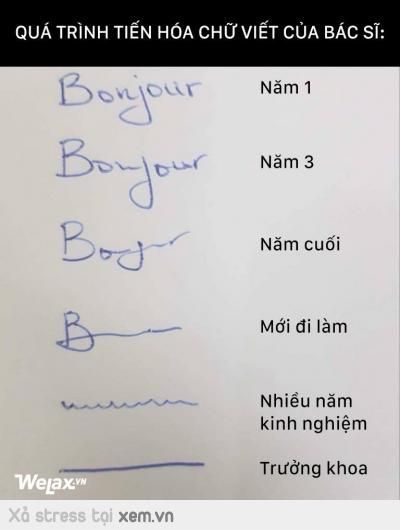 QUÁ TRÌNH TIẾN HÓA CHỮ VIẾT CỦA BÁC SĨ:
Bonjour Năm 1
Bonjour Năm 3
Năm cuối
B Mới đi làm
Nhiều năm
kinh nghiệm
Trưởng khoa
WeLax.VN
Xả stress tại xem.vn